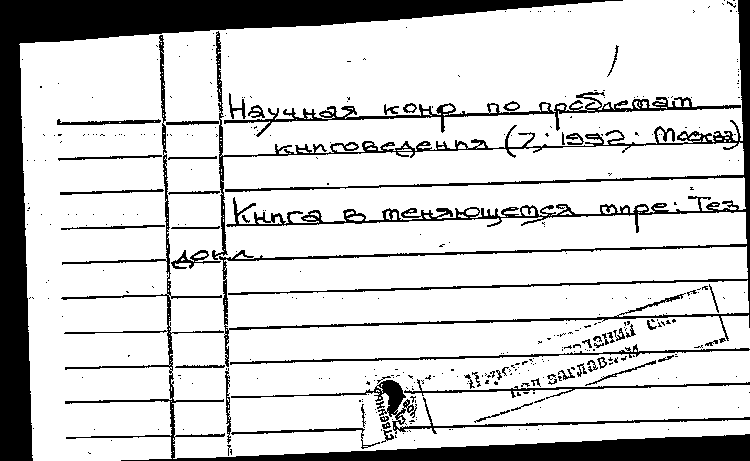 Научная конф. по проблемам
книговедения (7; 1992; Москва)
Книга в меняющемся мире: Тез
докл.
сведений см.
под заглавием